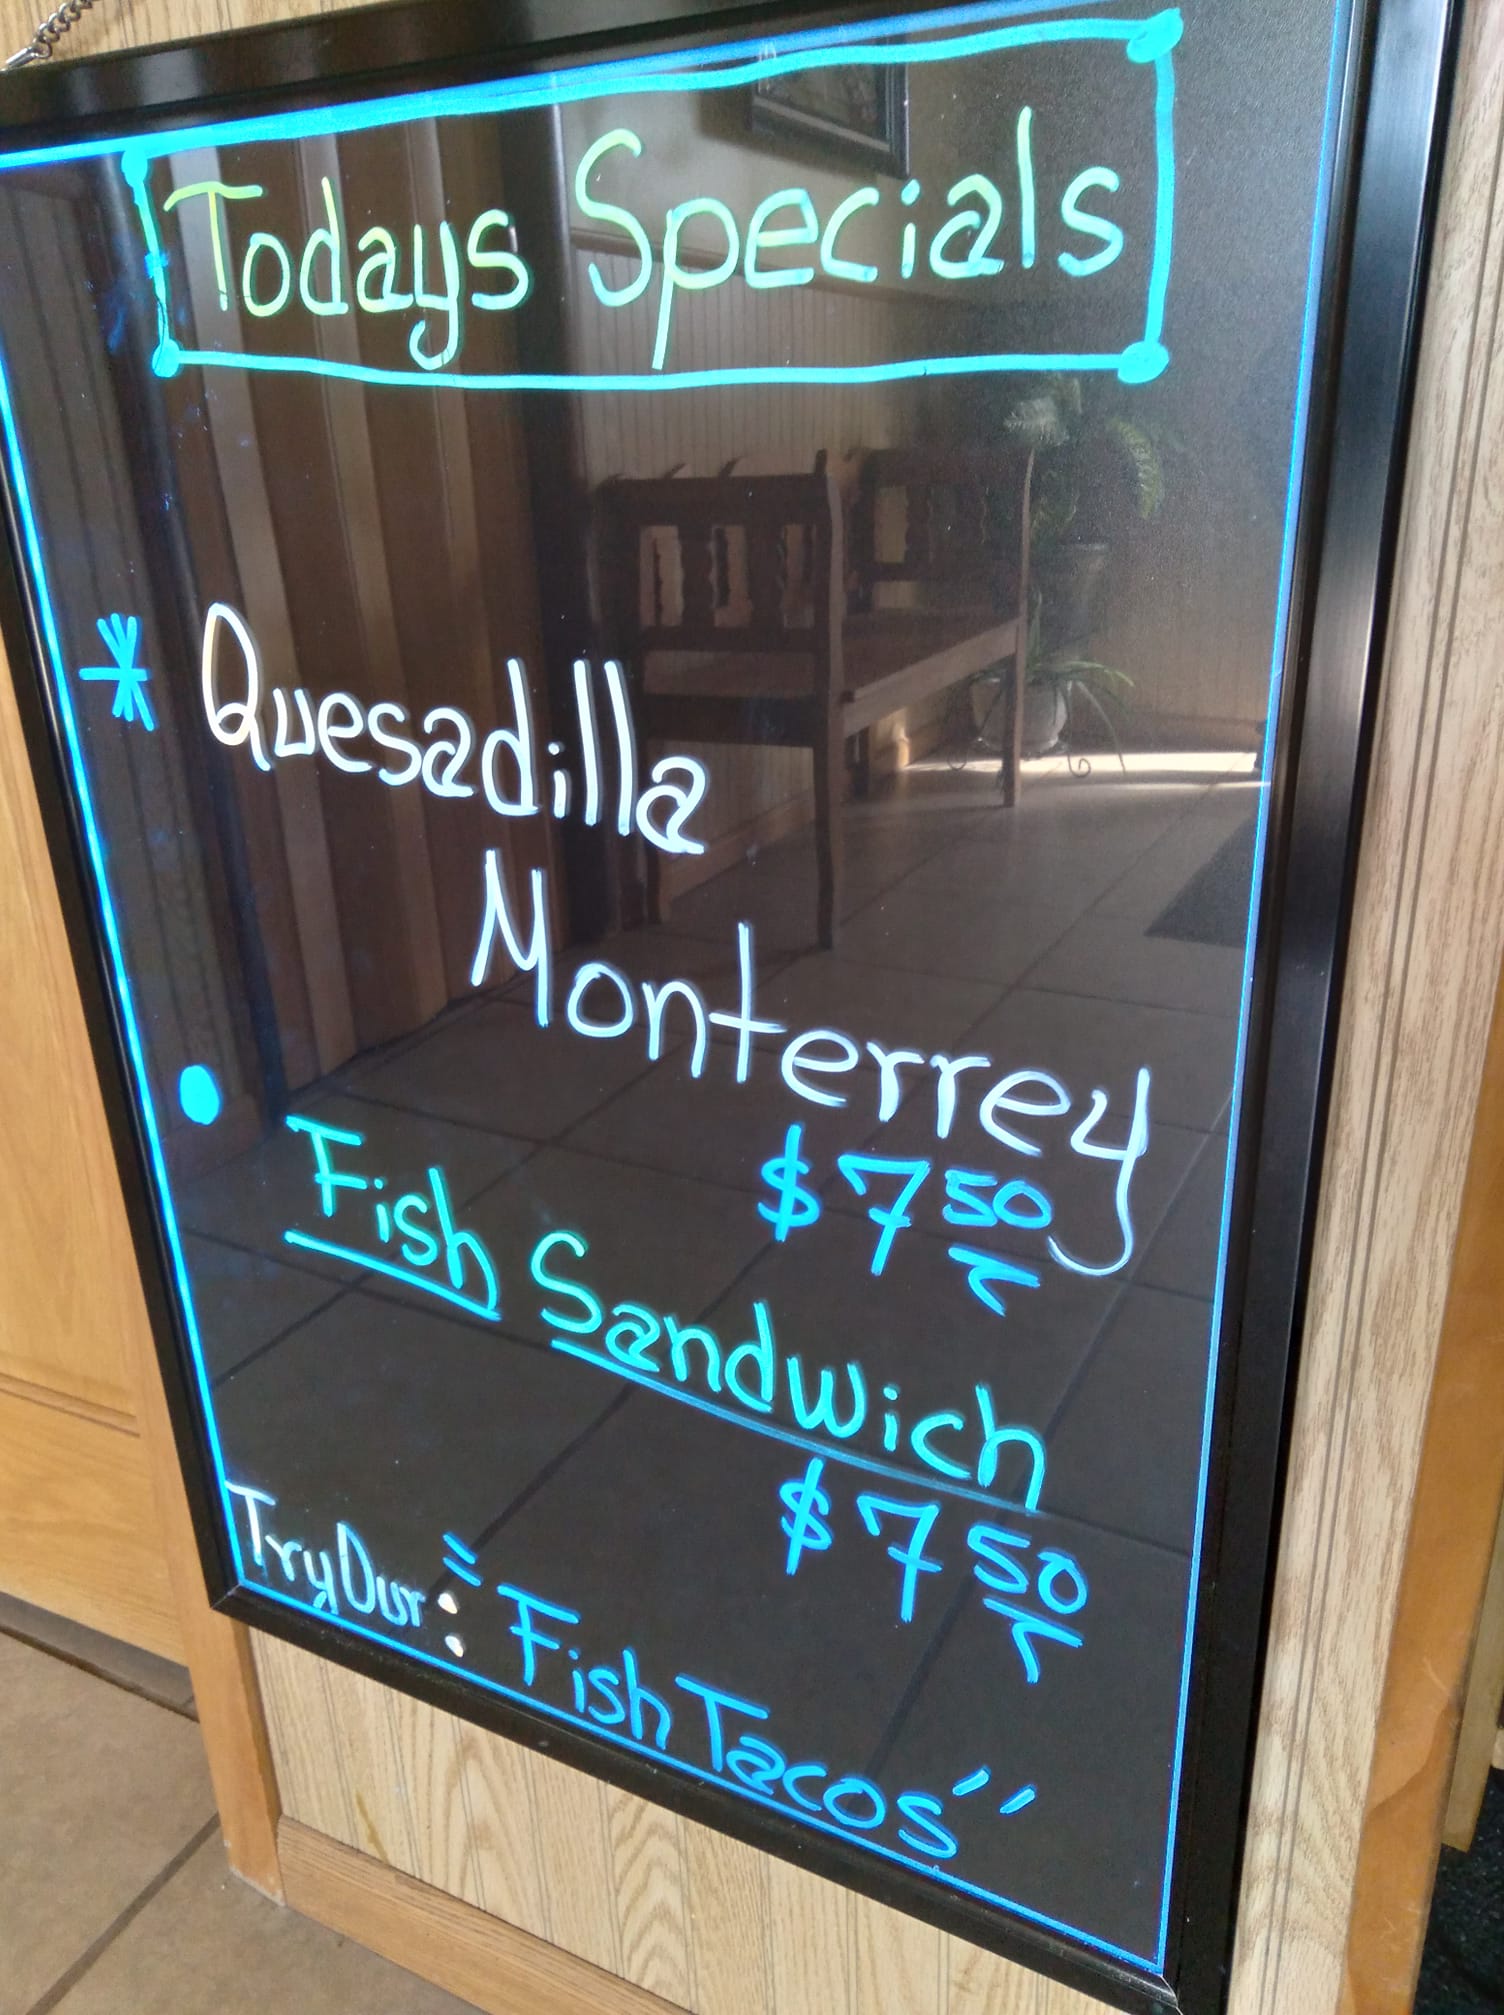 Todays Specials
* Quesadilla
Monterrey
$7 50
• Fish Sandwich
$7 50
Try Our: "Fish Tacos"